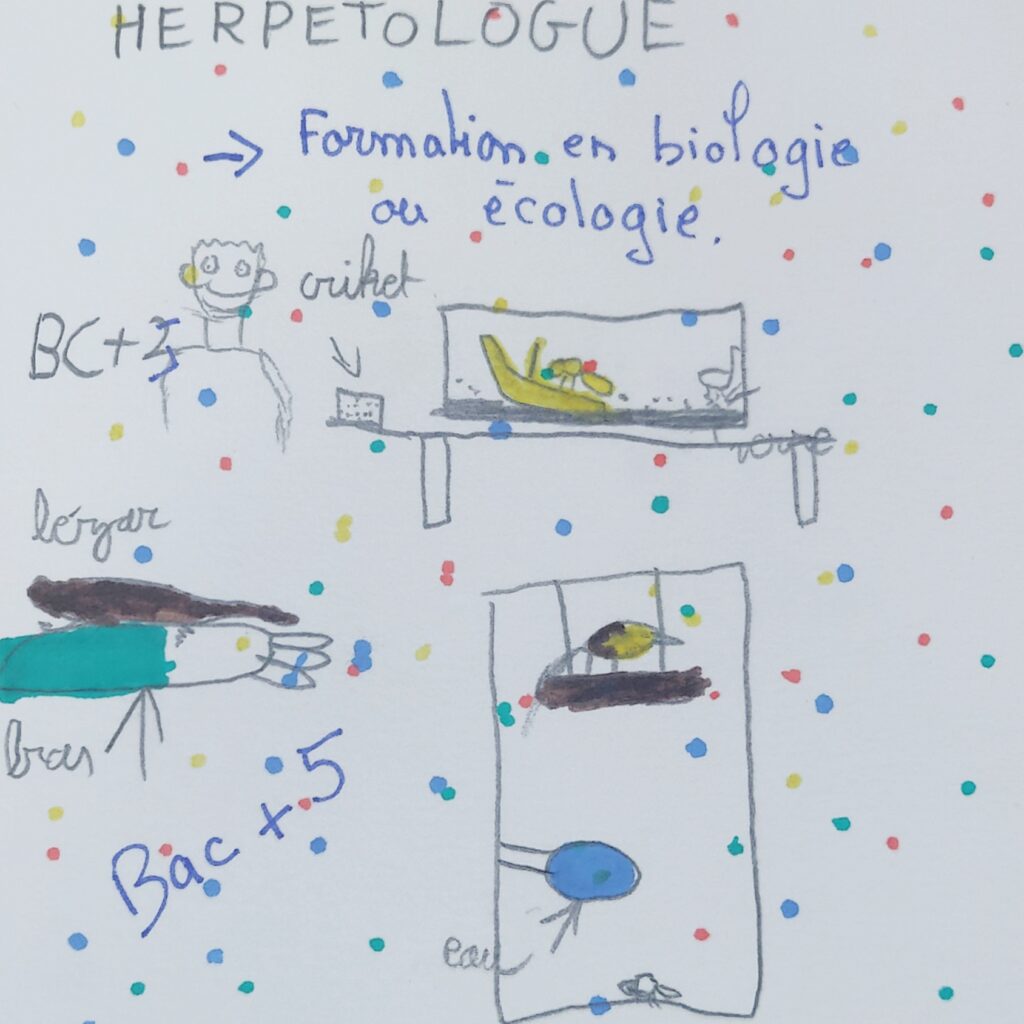 HERPETOLOGUE
→ Formation en biologie
ou écologie.
criket
BC+3
lérzar
bras
Bac + 5
eau